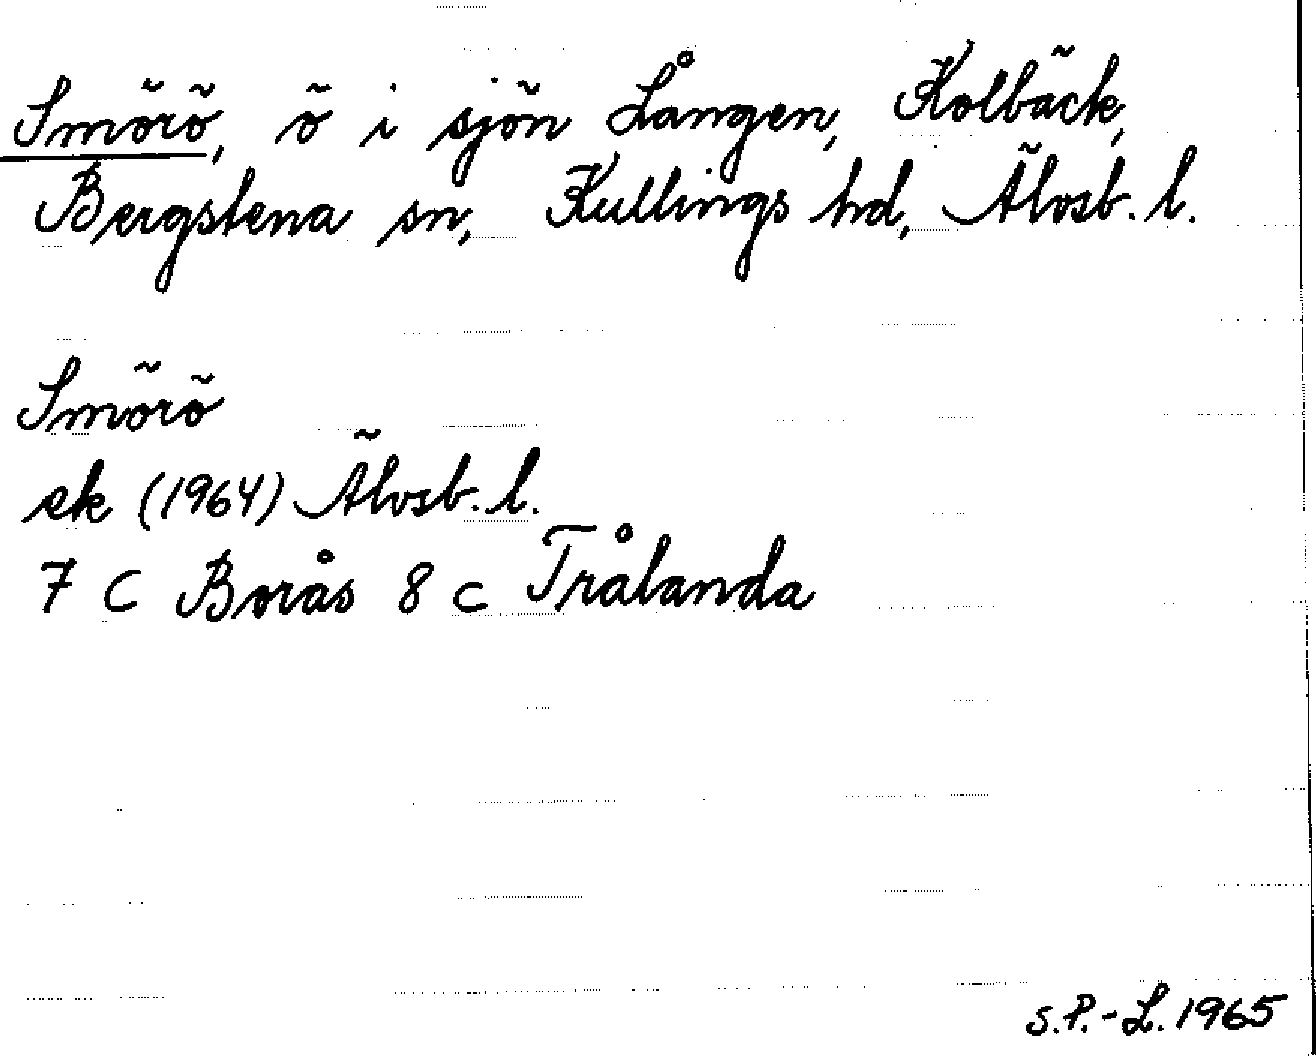 Smörö, ö i sjön Lången, Kolbäck,
Bergstena sn, Kullings hd, Älvsb. l.
Smörö
ek (1964) Älvsb. l.
7 C Borås 8 c Trålanda
S.P.-L. 1965